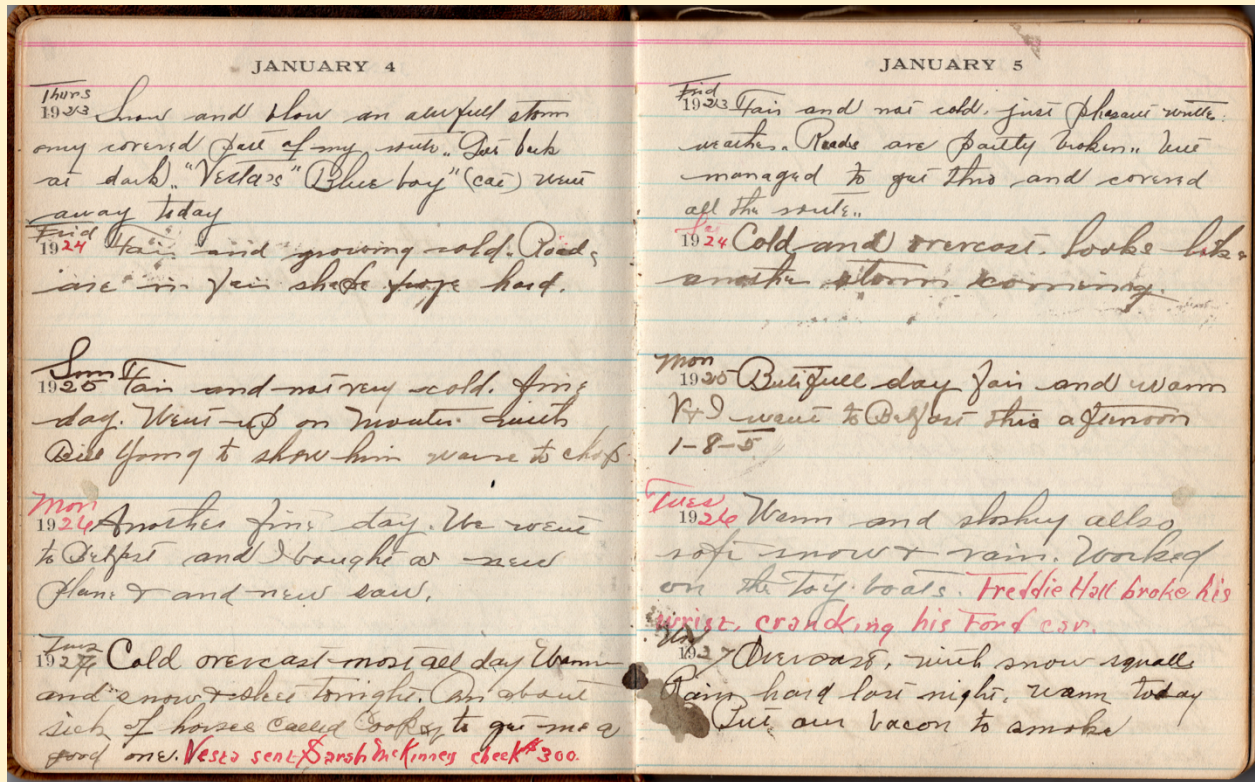 JANUARY 4
Thurs
1923 Snow and blow an awfull storm
ony covered part of my route.. Got back
at dark. "Vesta's" "Blue boy" (cat) went
away today
Frid
1924 Fair and growing cold. Roads
are in fair shape froze hard.
Sun
1925 Fair and not very cold. fine
day. Went up on Mountin with
Bill Young to show him ware to chop.
Mon
1926 Another fine day. We went
to Belfast and I bought a new
plane & and new saw.
Tues
1927 Cold overcast most all day Warm
and snow & sleet tonight. Am about
sick of horses called Cooper to get me a
good one. Vesta sent Sarah McKinney check $300.
JANUARY 5
Frid
1923 Fair and not cold. just pleasant winter
weather. Roads are partly broken.. but
managed to get thro and covered
all the route..
Sa
1924 Cold and overcast. looks like
another storm coming.
Mon
1925 Butifull day fair and warm
V & I went to Belfast this afternoon
1-8-5
Tues
1926 Warm and sloshy allso
soft snow & rain. Worked
on the toy boats. Freddie Hall broke his
wrist, cranking his Ford car.
Wed
1927 Overcast, with snow squalls
Rain hard last night, warm today
Put our bacon to smoke